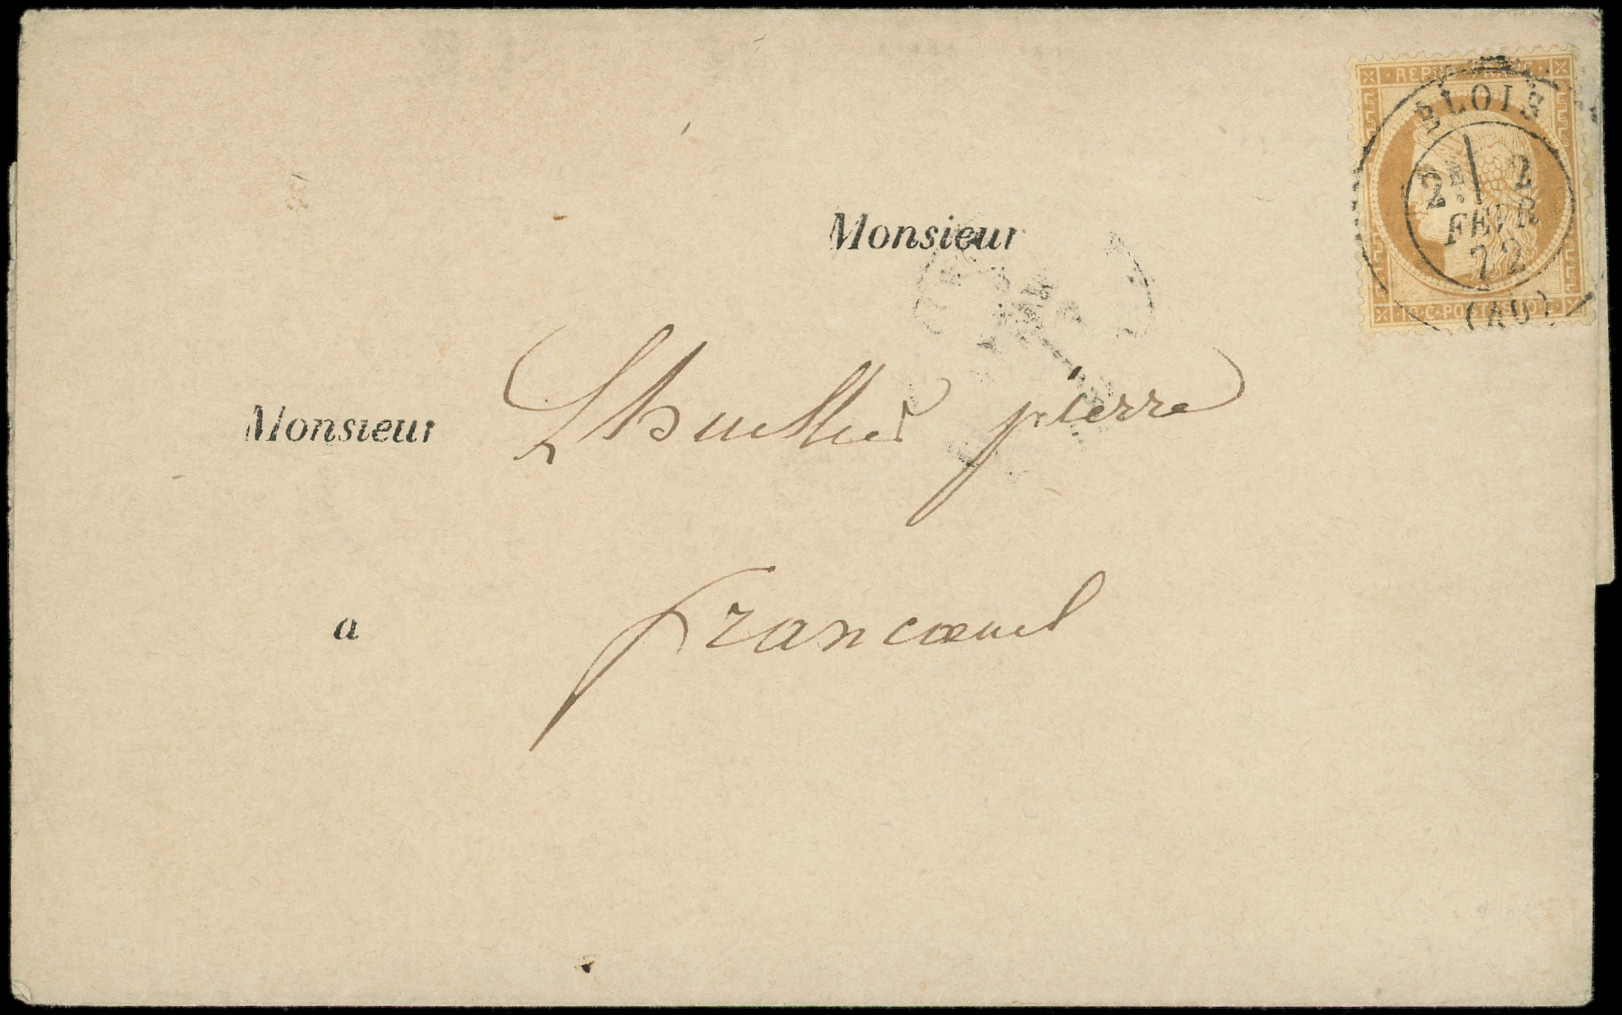 REPUB · FRANC
BLOIS
2E 2
FEVR
72
(40)
10·C·POSTES·10·C
Monsieur
Monsieur Lhuillier pierre
a francœuil